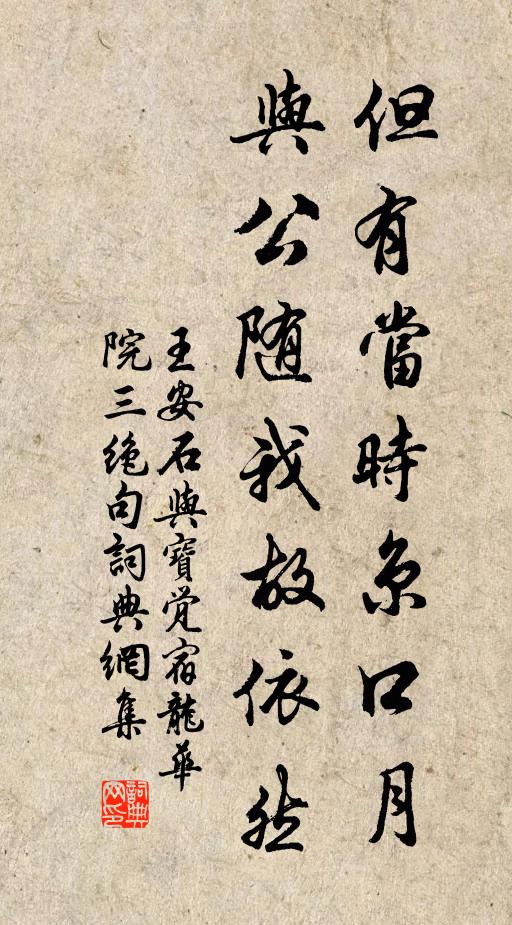 但有當時京口月
與公隨我故依然
王安石與寶覺宿龍華
院三絕句詞典網集
詞典
网印